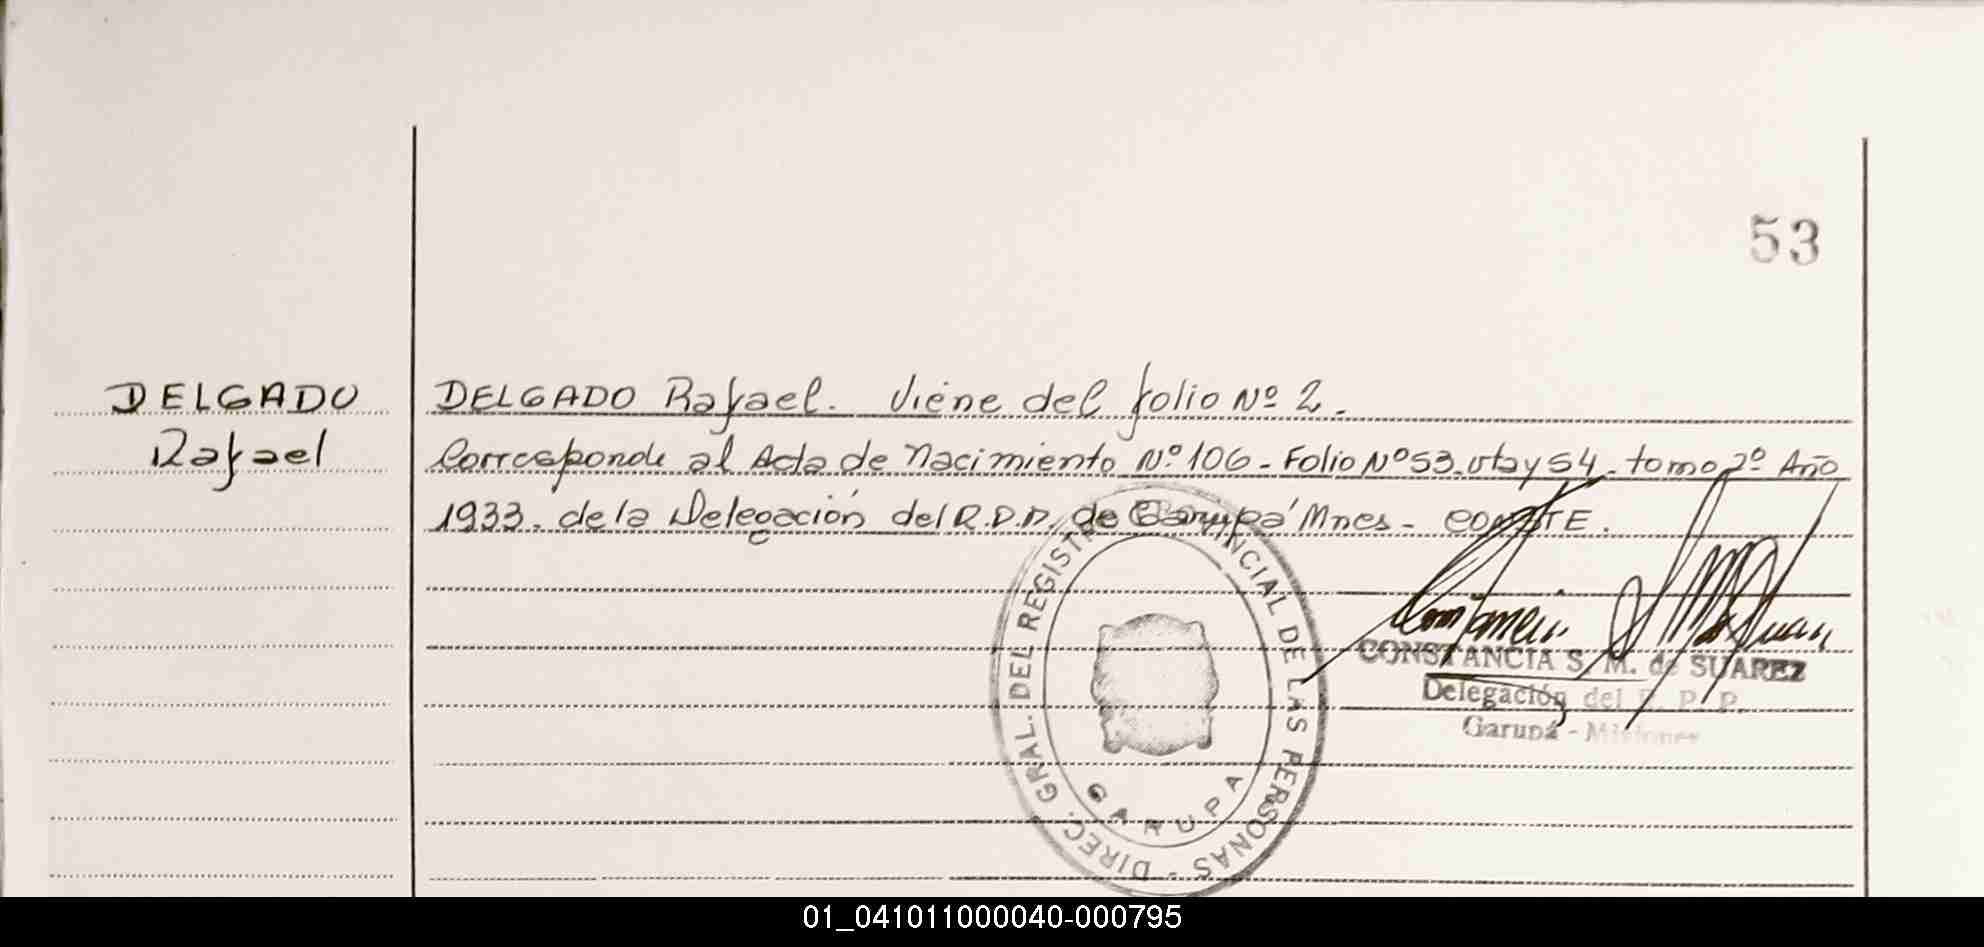 53
DELGADO
Rafael
DELGADO Rafael. Viene del folio Nº 2.
Corresponde al Acta de Nacimiento Nº 106 - Folio Nº 53 vta y 54. tomo 2º Año
1933. de la Delegación del R.P.P. de Garupá Mnes - CONSTE.
DIREC. GRAL. DEL REGISTRO PROVINCIAL DE LAS PERSONAS -
GARUPA
CONSTANCIA S. M. de SUAREZ
Delegación del R. P. P.
Garupá - Misiones
01_041011000040-000795